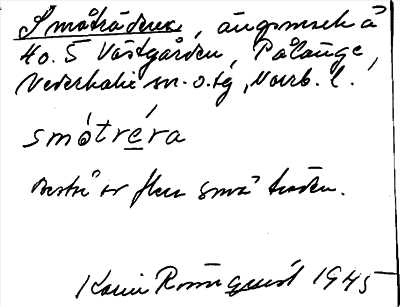 Småträdena, ängsmark å
Ho. 5 Västgården, Pålänge,
Nederkalix sn. o. tg, Norrb. l.
smótréra
Består av flera små träden.
Karin Rönnquist 1945